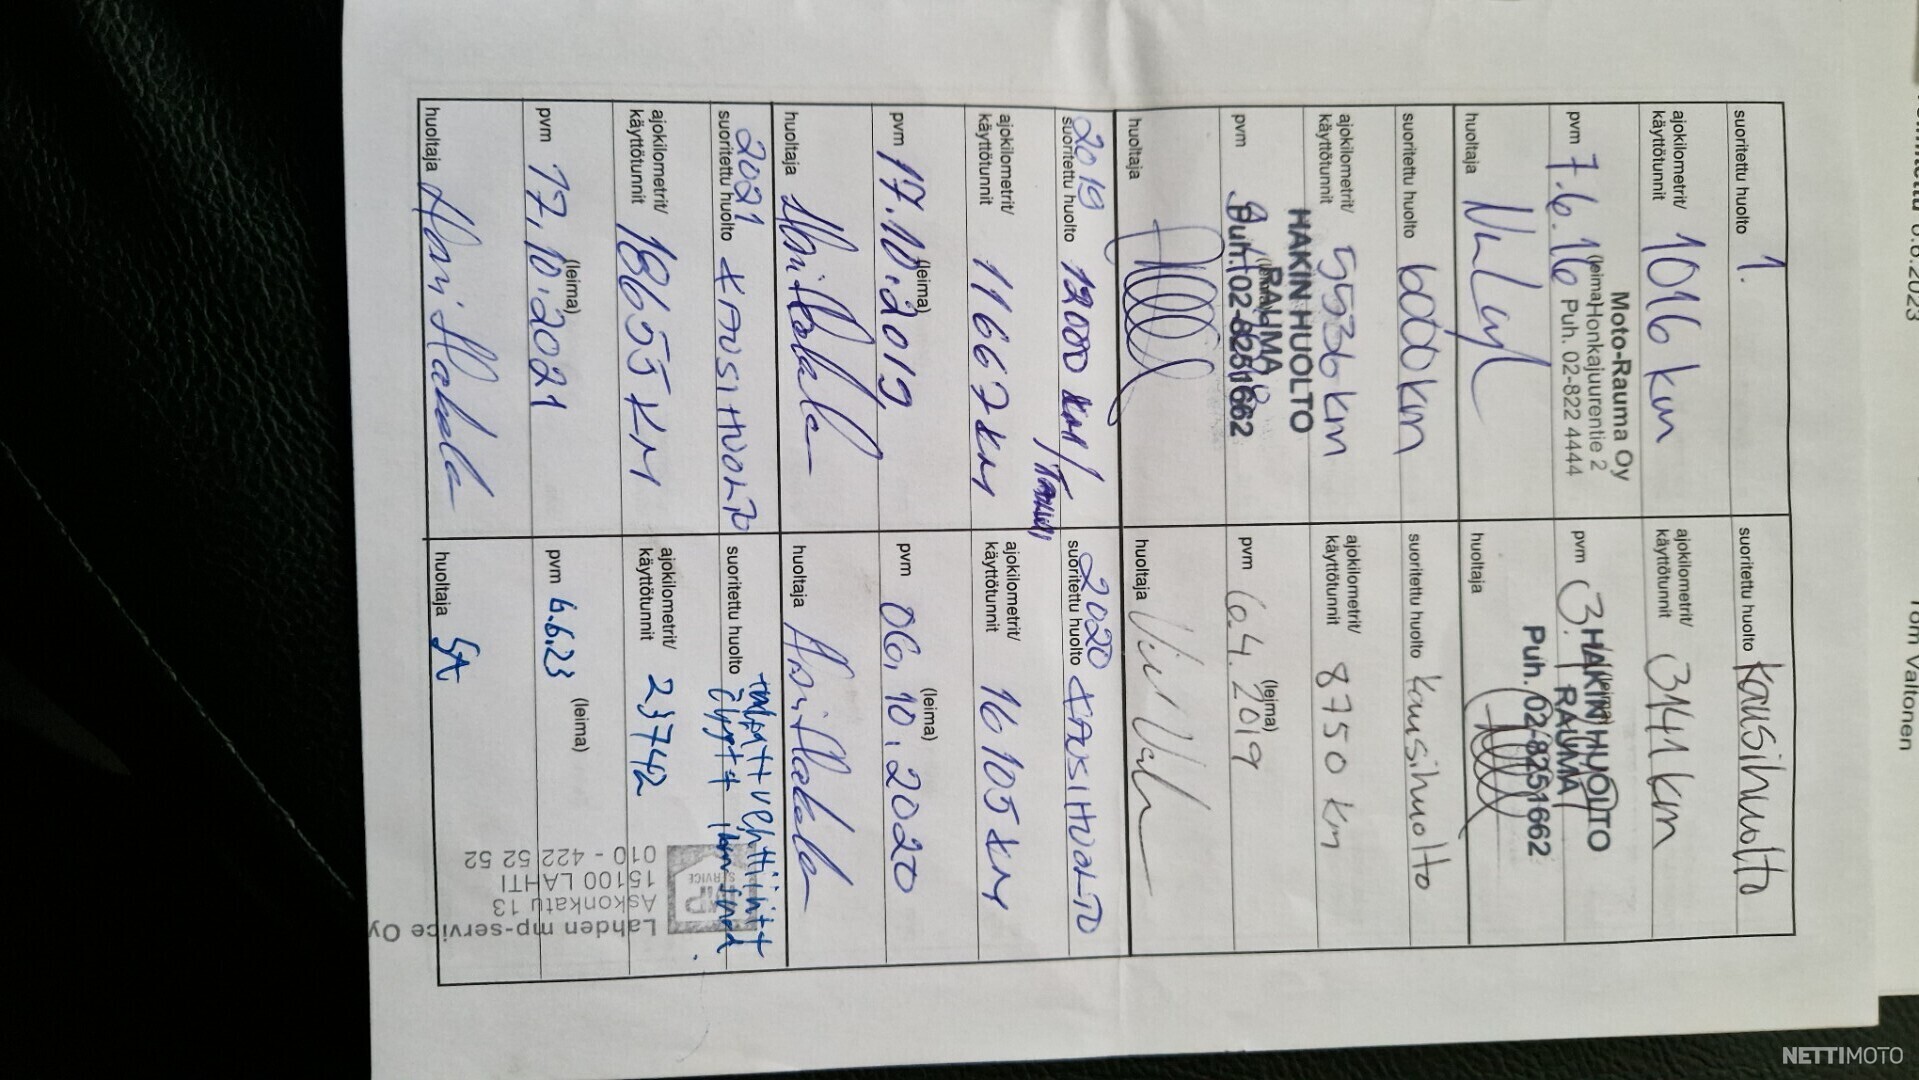 suoritettu huolto 1.
ajokilometrit/
käyttötunnit 1016 km
Moto-Rauma Oy
(leima) Honkajuurentie 2
Puh. 02-822 4444
pvm 7.6.16
huoltaja
suoritettu huolto kausihuolto
ajokilometrit/
käyttötunnit 3141 km
HAKIN HUOLTO
RAUMA
Puh. 02-8251662
pvm (leima)
huoltaja
suoritettu huolto 6000 km
ajokilometrit/
käyttötunnit 5536 km
HAKIN HUOLTO
RAUMA
Puh. 02-8251662
pvm
huoltaja
suoritettu huolto kausihuolto
ajokilometrit/
käyttötunnit 8750 km
pvm 6.4.2019 (leima)
huoltaja
2019
suoritettu huolto 12000 km/
ajokilometrit/
käyttötunnit 11667 KM
pvm 17.10.2019 (leima)
huoltaja
2020
suoritettu huolto KAUSIHUOLTO
ajokilometrit/
käyttötunnit 16105 KM
pvm 06.10.2020 (leima)
huoltaja
2021
suoritettu huolto KAUSIHUOLTO
ajokilometrit/
käyttötunnit 18655 KM
pvm 17.10.2021 (leima)
huoltaja
suoritettu huolto
ajokilometrit/
käyttötunnit 23742
pvm 6.6.23 (leima)
huoltaja
MP
SERVICE
Lahden mp-service Oy
Askonkatu 13
15100 LAHTI
010 - 422 52 52
6.6.2023
Tom Valtonen
NETTIMOTO